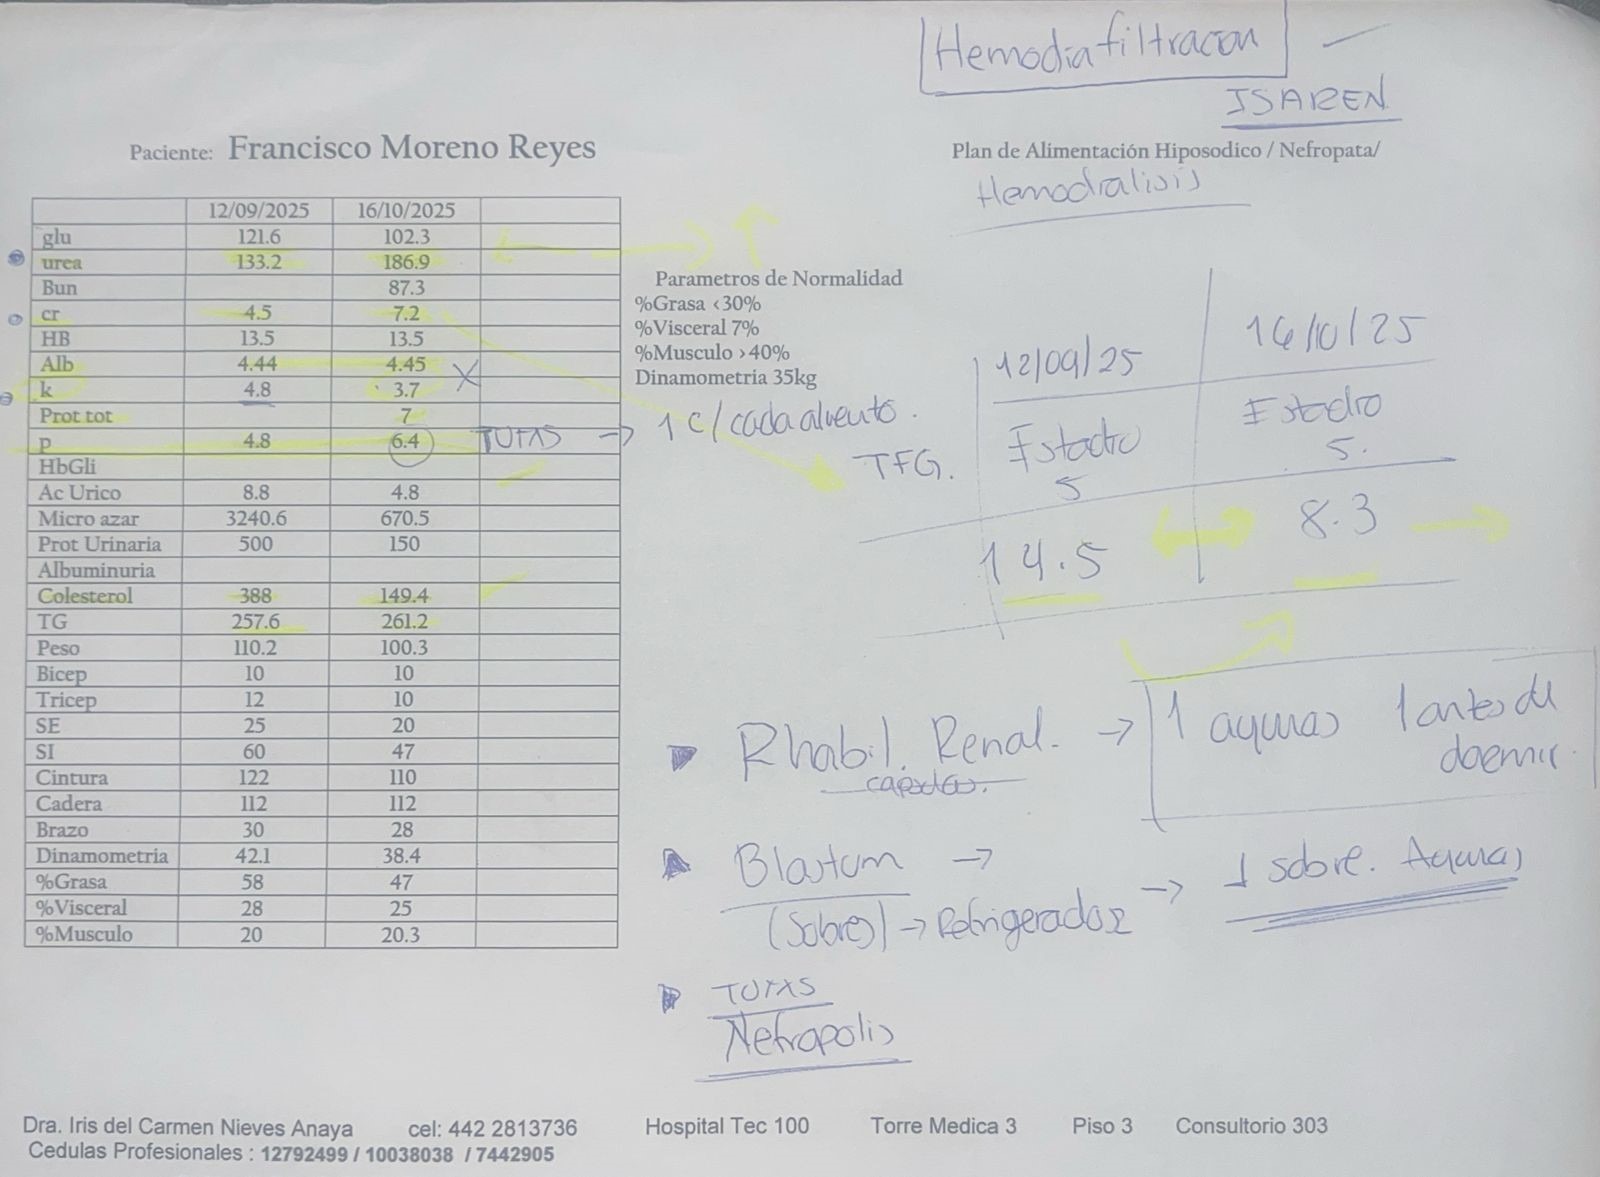 Hemodiafiltracion
ISAREN
Paciente: Francisco Moreno Reyes
Plan de Alimentación Hiposodico / Nefropata/
Hemodialisis
12/09/2025 16/10/2025
glu 121.6 102.3
urea 133.2 186.9
Bun 87.3
cr 4.5 7.2
HB 13.5 13.5
Alb 4.44 4.45 X
k 4.8 3.7
Prot tot 7
p 4.8 6.4 → 1 c/cada
HbGli
Ac Urico 8.8 4.8
Micro azar 3240.6 670.5
Prot Urinaria 500 150
Albuminuria
Colesterol 388 149.4
TG 257.6 261.2
Peso 110.2 100.3
Bicep 10 10
Tricep 12 10
SE 25 20
SI 60 47
Cintura 122 110
Cadera 112 112
Brazo 30 28
Dinamometria 42.1 38.4
%Grasa 58 47
%Visceral 28 25
%Musculo 20 20.3
Parametros de Normalidad
%Grasa <30%
%Visceral 7%
%Musculo >40%
Dinamometria 35kg
12/09/25 16/10/25
TFG. Estadio 5 Estadio 5.
14.5 8.3
Rhabil. Renal. → 1 ayunas 1 antes de
dormir.
→
(Sobres) → Refrigerador → 1 sobre. Ayunas
Nefropolis
Dra. Iris del Carmen Nieves Anaya cel: 442 2813736 Hospital Tec 100 Torre Medica 3 Piso 3 Consultorio 303
Cedulas Profesionales : 12792499 / 10038038 / 7442905